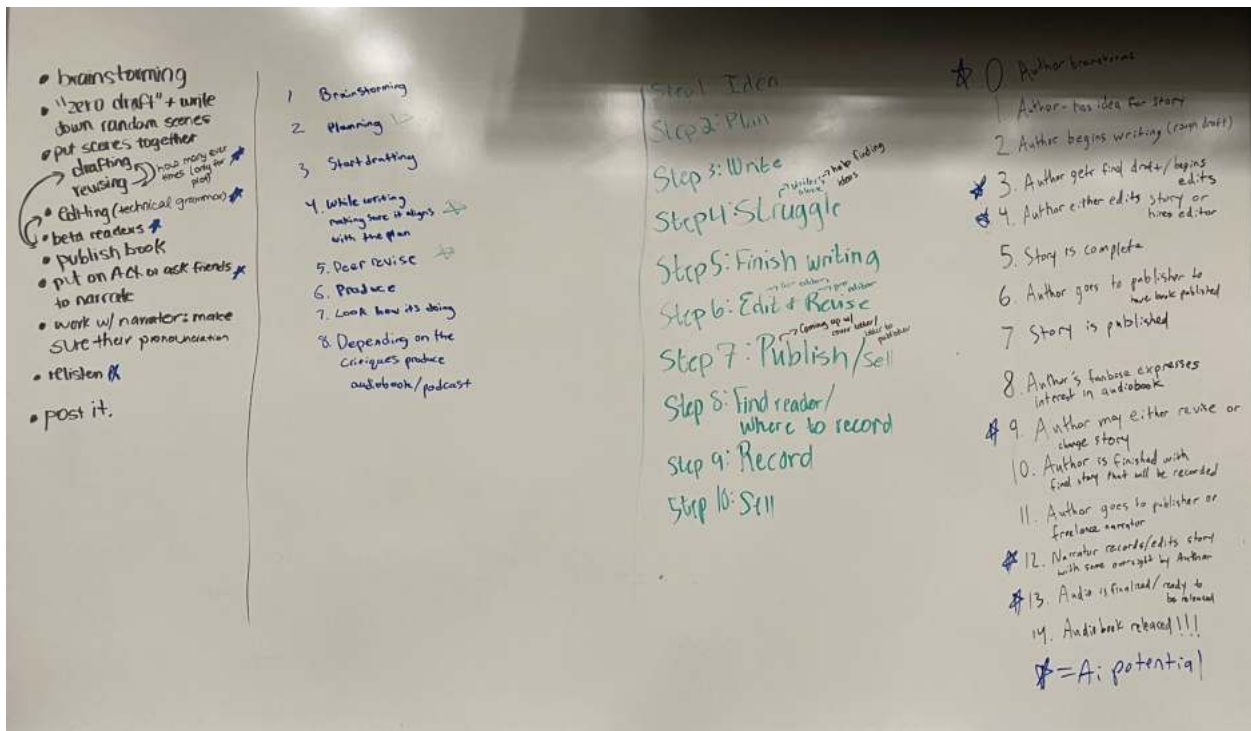 • brainstorming
• "zero draft" + write
down random scenes
• put scenes together
drafting
revising
how many ever
times (only for
plot)
• Editing (technical grammar)
• beta readers
• publish book
• put on ACX or ask friends
to narrate
• work w/ narrator: make
sure their pronunciation
• relisten
• post it.
1 Brainstorming
2 Planning
3 Start drafting
4. While writing
making sure it aligns
with the plan
5. Peer revise
6. Produce
7. Look how its doing
8. Depending on the
critiques produce
audiobook/podcast
Step 1: Idea
Step 2: Plan
Step 3: Write
writer's
block
help finding
ideas
Step 4: Struggle
Step 5: Finish writing
Step 6: Edit & Revise
Coming up w/
cover letter/
letter to
publisher
Step 7: Publish/sell
Step 8: Find reader/
Where to record
Step 9: Record
Step 10: Sell
0 Author brainstorms
1 Author has idea for story
2 Author begins writing (rough draft)
3. Author gets final draft/begins
edits
4. Author either edits story or
hires editor
5. Story is complete
6. Author goes to publisher to
have book published
7 Story is published
8. Author's fanbase expresses
interest in audiobook
9. Author may either revise or
change story
10. Author is finished with
final story that will be recorded
11. Author goes to publisher or
freelance narrator
12. Narrator records/edits story
with some oversight by Author
13. Audio is finalized/ready to
be released
14. Audiobook released!!!
= Ai potential